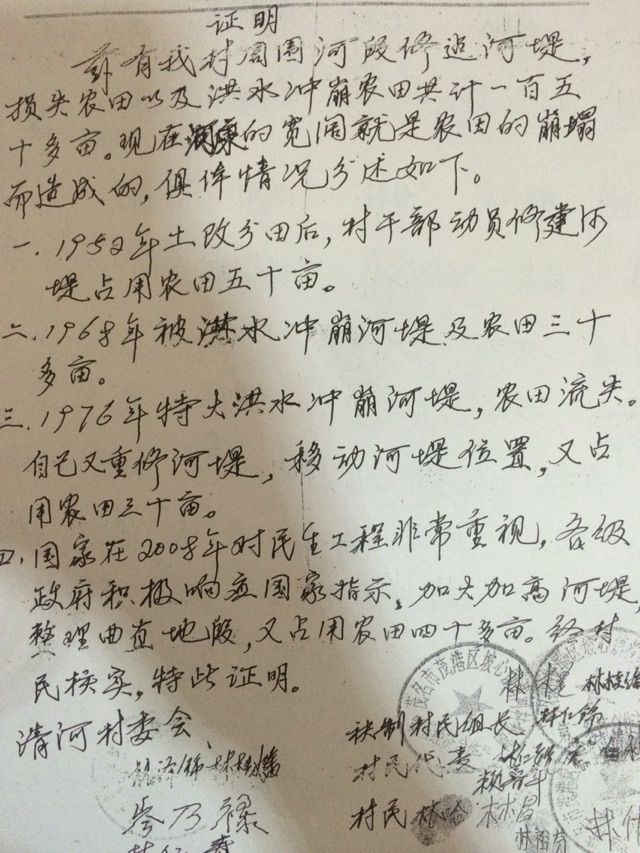 证明
前有我村周围河段修造河堤，
损失农田以及洪水冲崩农田共计一百五
十多亩。现在的宽阔就是农田的崩塌
而造成的，俱体情况分述如下。
一.1952年土改分田后，村干部动员修建河
堤占用农田五十亩。
二.1968年被洪水冲崩河堤及农田三十
多亩。
三.1976年特大洪水冲崩河堤，农田流失。
自己又重修河堤，移动河堤位置，又占
用农田三十亩。
四.国家在2008年对民生工程非常重视，各级
政府积极响应国家指示。加大加高河堤，
整理曲直地段，又占用农田四十多亩。经村
民核实，特此证明。
茂名市茂港区
清河村委会
制村民组长
村民代表
村民